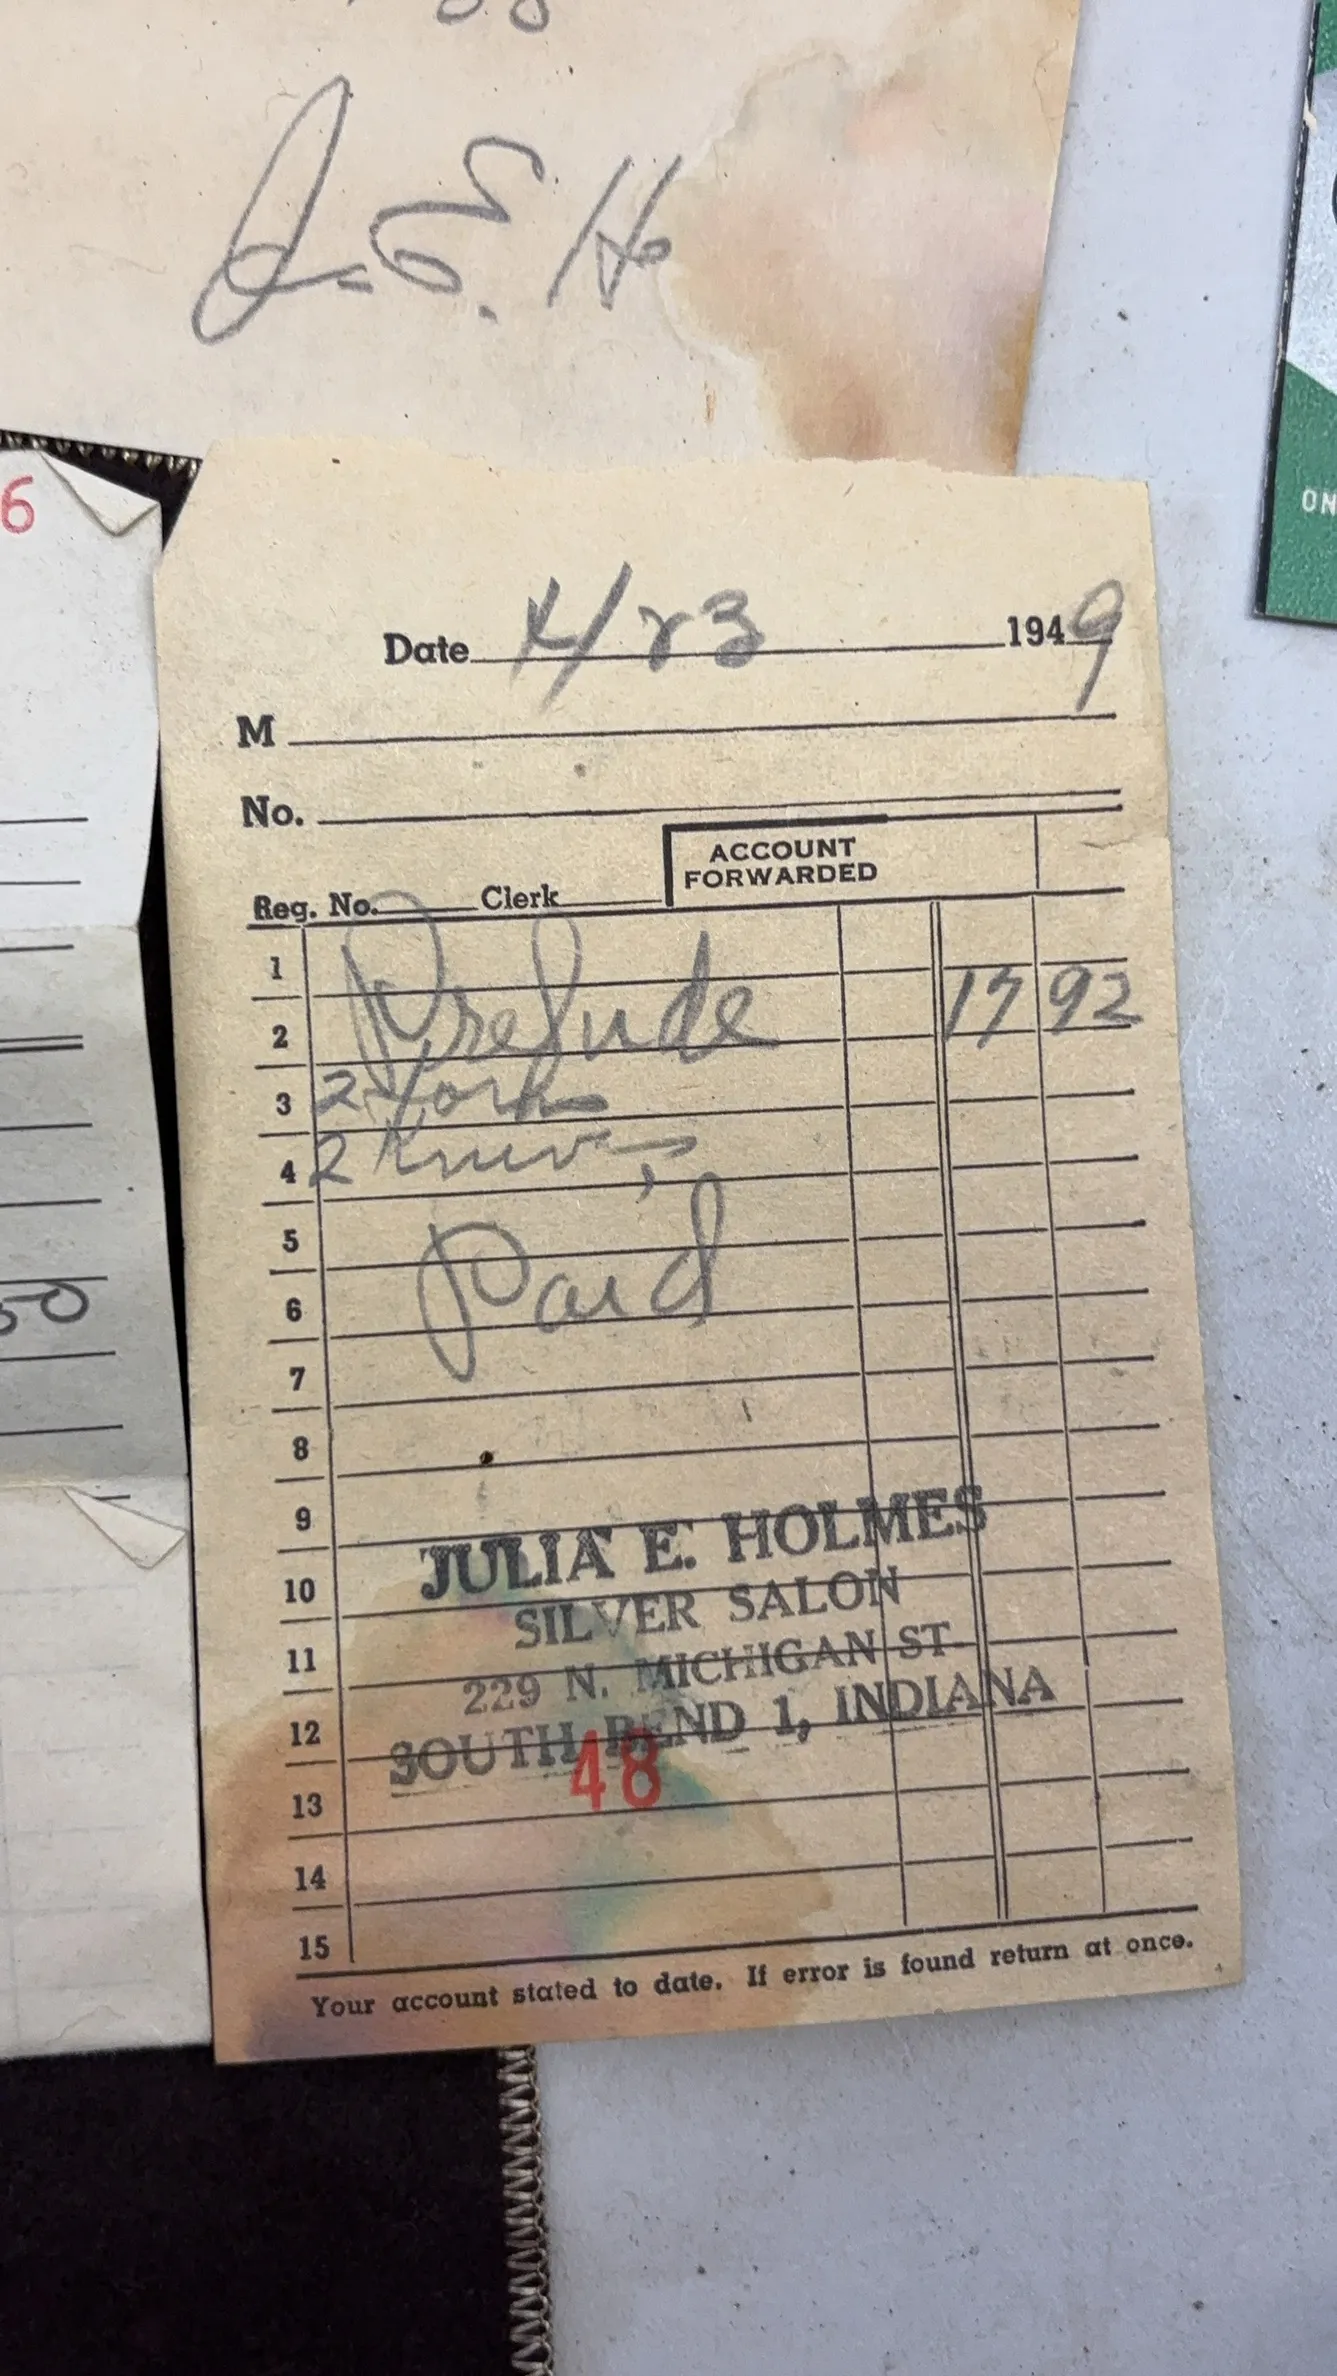 J. E. H
6
ON
Date 4/23 1949
M
No.
ACCOUNT
FORWARDED
Reg. No. Clerk
1
2 Prelude 17 92
3 2 forks
4 2 knives
5
6 Paid
7
8
9
10
11
12
13
14
15
50
JULIA E. HOLMES
SILVER SALON
229 N. MICHIGAN ST.
SOUTH BEND 1, INDIANA
48
Your account stated to date. If error is found return at once.